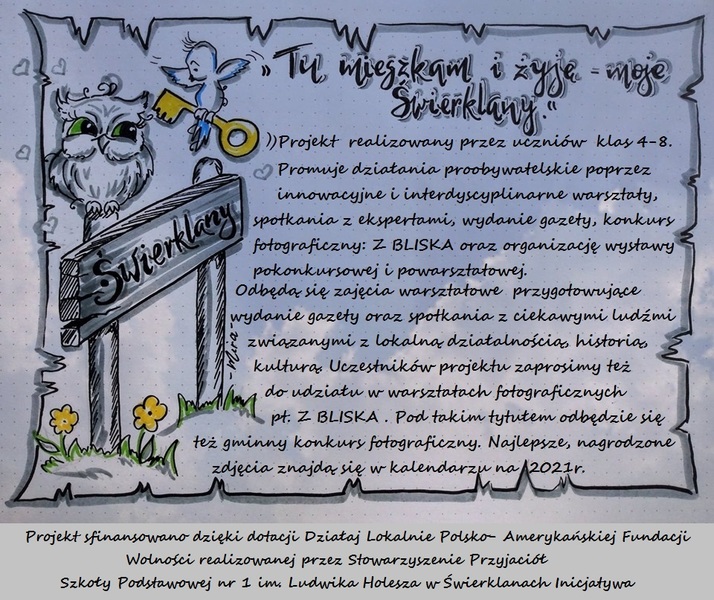 „Tu mieszkam i żyję - moje
Świerklany."
Projekt realizowany przez uczniów klas 4-8.
Promuje działania proobywatelskie poprzez
innowacyjne i interdyscyplinarne warsztaty,
spotkania z ekspertami, wydanie gazety, konkurs
fotograficzny: Z BLISKA oraz organizację wystawy
pokonkursowej i powarsztatowej.
Świerklany
Odbędą się zajęcia warsztatowe przygotowujące
wydanie gazety oraz spotkania z ciekawymi ludźmi
związanymi z lokalną działalnością, historią,
kulturą. Uczestników projektu zaprosimy też
do udziału w warsztatach fotograficznych
pt. Z BLISKA . Pod takim tytułem odbędzie się
też gminny konkurs fotograficzny. Najlepsze, nagrodzone
zdjęcia znajdą się w kalendarzu na 2021r.
-Mira-
Projekt sfinansowano dzięki dotacji Działaj Lokalnie Polsko- Amerykańskiej Fundacji
Wolności realizowanej przez Stowarzyszenie Przyjaciół
Szkoły Podstawowej nr 1 im. Ludwika Holesza w Świerklanach Inicjatywa